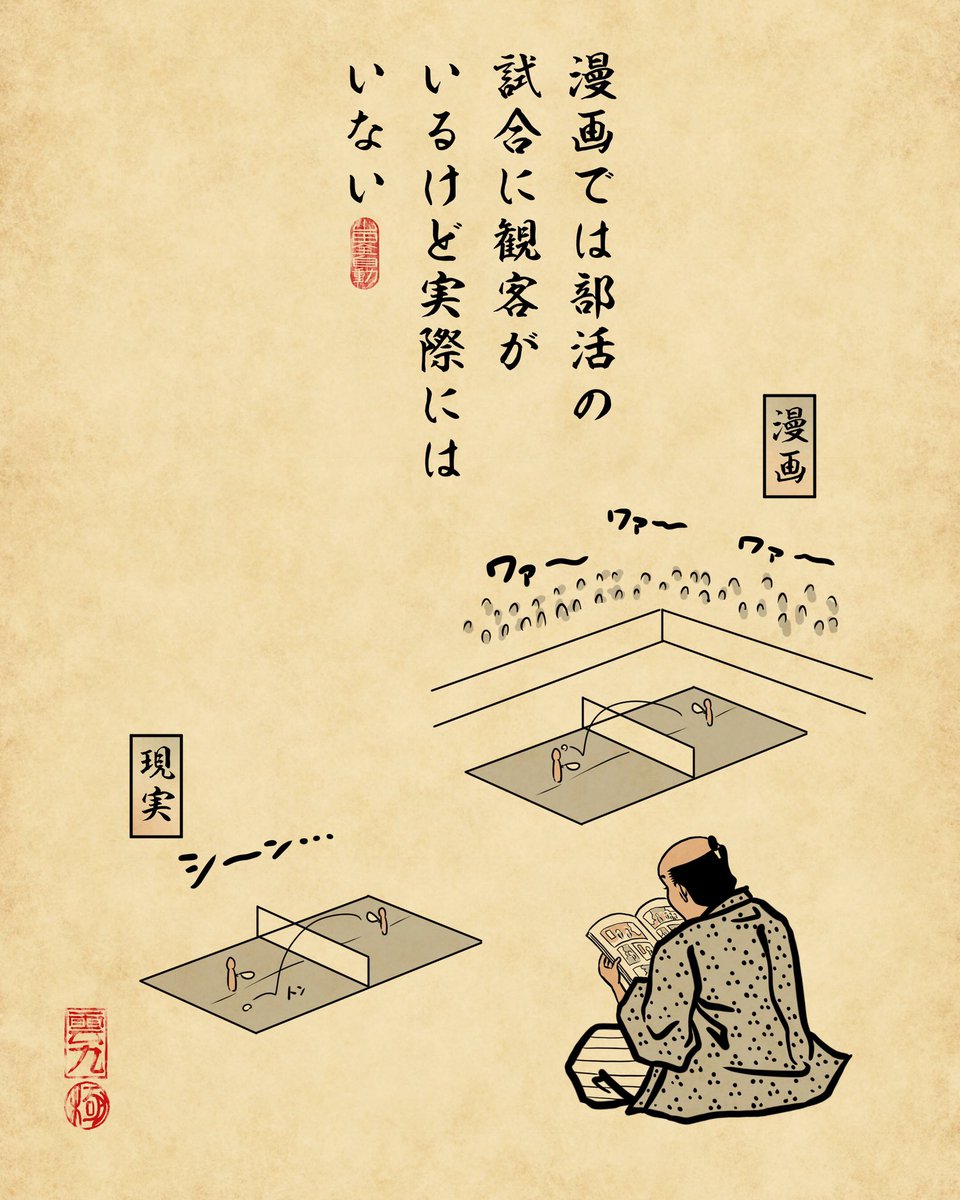 漫画では部活の
試合に観客が
いるけど実際には
いない
漫画
ワァ〜
ワァ〜
ワァ〜
現実
シーン…
トン